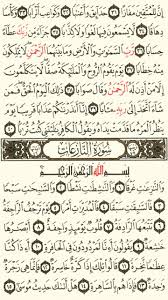 إِنَّ لِلْمُتَّقِينَ مَفَازًا ٣١ حَدَآئِقَ وَأَعْنَٰبًا ٣٢ وَكَوَاعِبَ أَتْرَابًا
٣٣ وَكَأْسًا دِهَاقًا ٣٤ لَّا يَسْمَعُونَ فِيهَا لَغْوًا وَلَا كِذَّٰبًا ٣٥ جَزَآءً مِّن رَّبِّكَ
عَطَآءً حِسَابًا ٣٦ رَّبِّ ٱلسَّمَٰوَٰتِ وَٱلْأَرْضِ وَمَا بَيْنَهُمَا ٱلرَّحْمَٰنِ لَا يَمْلِكُونَ
مِنْهُ خِطَابًا ٣٧ يَوْمَ يَقُومُ ٱلرُّوحُ وَٱلْمَلَٰٓئِكَةُ صَفًّا لَّا يَتَكَلَّمُونَ
إِلَّا مَنْ أَذِنَ لَهُ ٱلرَّحْمَٰنُ وَقَالَ صَوَابًا ٣٨ ذَٰلِكَ ٱلْيَوْمُ ٱلْحَقُّ فَمَن
شَآءَ ٱتَّخَذَ إِلَىٰ رَبِّهِۦ مَـَٔابًا ٣٩ إِنَّآ أَنذَرْنَٰكُمْ عَذَابًا قَرِيبًا يَوْمَ
يَنظُرُ ٱلْمَرْءُ مَا قَدَّمَتْ يَدَاهُ وَيَقُولُ ٱلْكَافِرُ يَٰلَيْتَنِى كُنتُ تُرَٰبًۢا ٤٠
سُورَةُ النَّازِعَاتِ
بِسْمِ ٱللَّهِ ٱلرَّحْمَٰنِ ٱلرَّحِيمِ
وَٱلنَّٰزِعَٰتِ غَرْقًا ١ وَٱلنَّٰشِطَٰتِ نَشْطًا ٢ وَٱلسَّٰبِحَٰتِ سَبْحًا
٣ فَٱلسَّٰبِقَٰتِ سَبْقًا ٤ فَٱلْمُدَبِّرَٰتِ أَمْرًا ٥ يَوْمَ تَرْجُفُ ٱلرَّاجِفَةُ
٦ تَتْبَعُهَا ٱلرَّادِفَةُ ٧ قُلُوبٌ يَوْمَئِذٍ وَاجِفَةٌ ٨ أَبْصَٰرُهَا خَٰشِعَةٌ
٩ يَقُولُونَ أَءِنَّا لَمَرْدُودُونَ فِى ٱلْحَافِرَةِ ١٠ أَءِذَا كُنَّا عِظَٰمًا نَّخِرَةً
١١ قَالُوا۟ تِلْكَ إِذًا كَرَّةٌ خَاسِرَةٌ ١٢ فَإِنَّمَا هِىَ زَجْرَةٌ وَٰحِدَةٌ
١٣ فَإِذَا هُم بِٱلسَّاهِرَةِ ١٤ هَلْ أَتَىٰكَ حَدِيثُ مُوسَىٰٓ ١٥